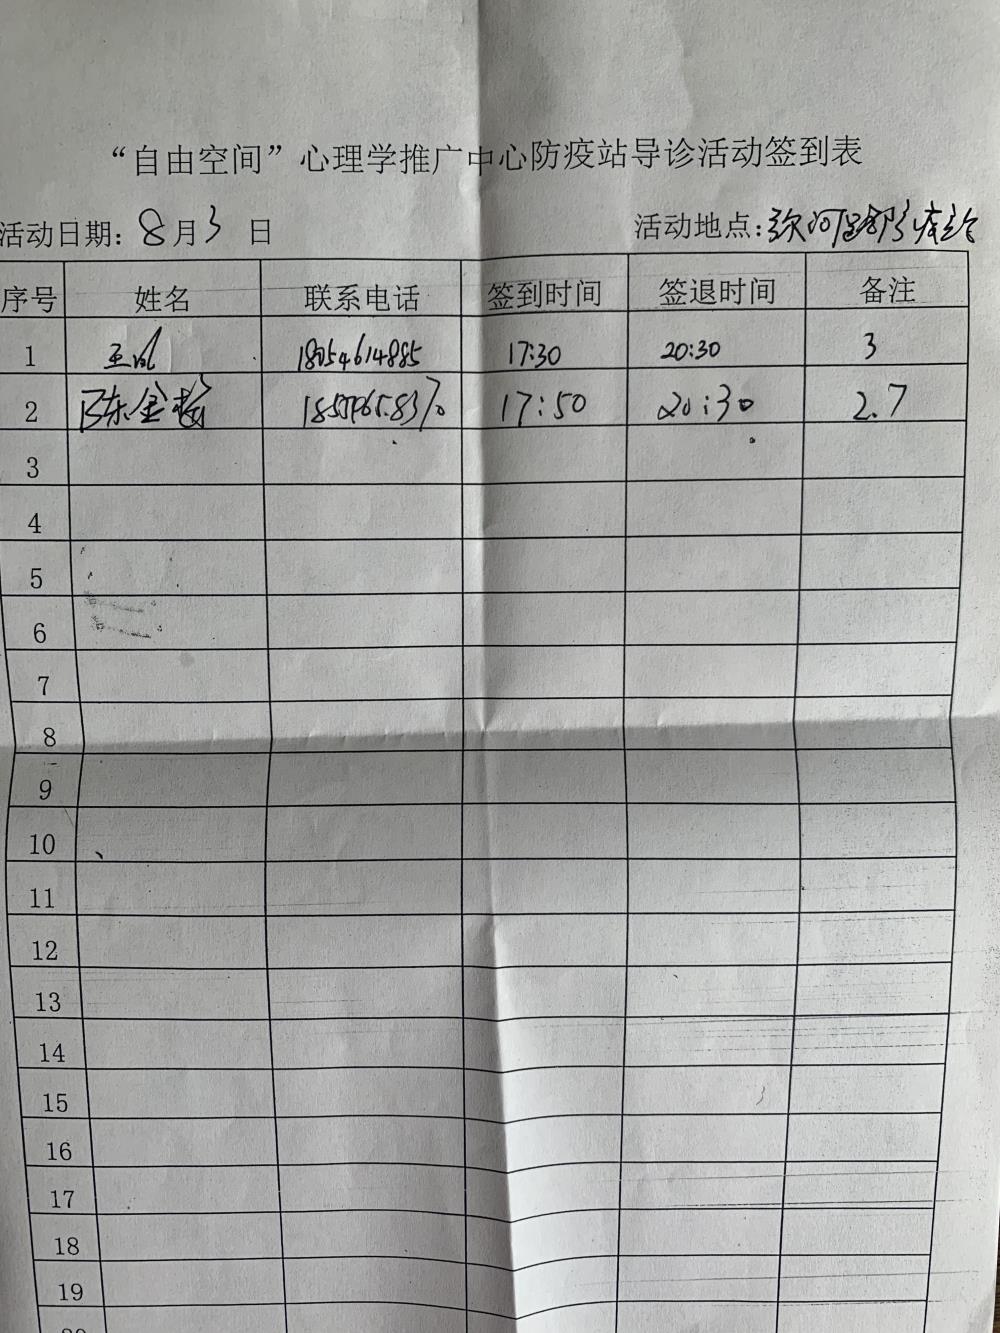 “自由空间”心理学推广中心防疫站导诊活动签到表
活动日期: 8月3日 活动地点:
序号 姓名 联系电话 签到时间 签退时间 备注
1 18054614885 17:30 20:30 3
2 陈金 17:50 20:30 2.7
3
4
5
6
7
8
9
10
11
12
13
14
15
16
17
18
19
20